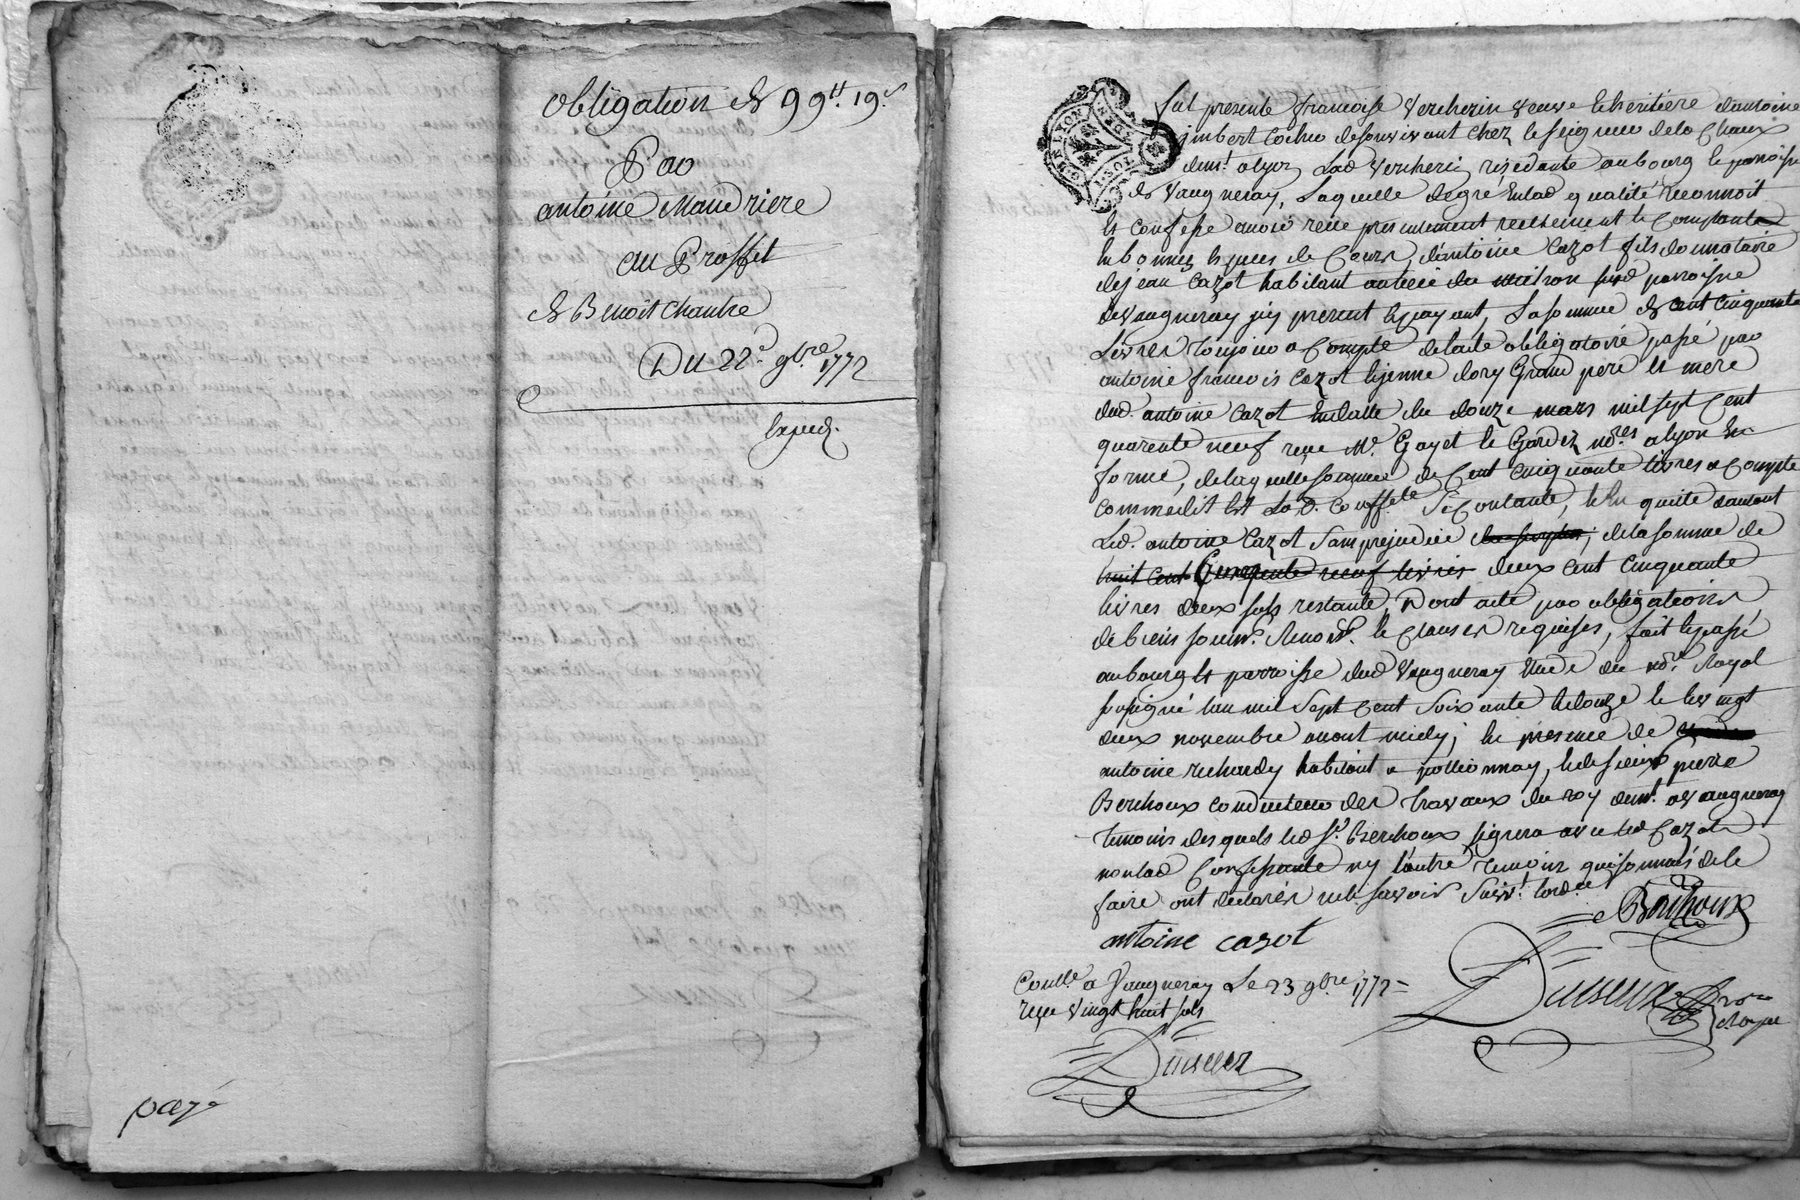 obligation de 99ᵗᵗ 19ˢ
Par
antoine Maudriere
au Proffit
de Benoit chantre
Du 22ᵉ 9bre 1772
Exped.
paye
fut presente francoise Vercherin veuve & heritiere d'antoine
imbert cocher de son vivant chez le seigneur de la Chaux
demt a lyon Lad Vercherin residante au bourg & parroisse
de Vaugneray, Laquelle de gre en lad qualité reconnoit
& confesse avoir reçu presentement reellement & comptant
en bonnes especes de Cours d'antoine Cazot fils donnataire
de jean Cazot habitant au lieu du susd parroisse
de vaugneray icy present & payant, La somme de cent cinquante
Livres toujour a Compte de l'acte obligatoire passé par
antoine francois Cazot & jenne dory Grand pere & mere
dud. antoine Cazot en datte du douze mars mil sept Cent
quarente neuf reçu Me. Gayet & Gardez nores a lyon en
forme, de laquelle somme de Cent Cinquante livres a Compte
comme dit est La d. Conffte Se Contante, & en quitte dautant
Led. antoine Cazot sans prejudice de la somme de
neuf livres deux cent cinquante
livres deux sols restante, Dont acte par obligations
de biens soumon. Renoon. & Clauses requises, fait & passé
au bourg & parroisse dud Vaugneray Etude du nore. Royal
soussigné l'an mil Sept Cent Soixante & douze & le vingt
deux novembre avant midy, en presence de
antoine richardy habitant a pollionnay, & de sieur pierre
Berthoux conducteur des travaux du roy demt. a vaugneray
temoins desquels led sr. Berthoux signera avec led Cazot
non lad Confessante ny l'autre temoin qui sommés de le
faire ont declarés ne le savoir suivt. lordce
Berthoux
antoine cazot
Conllé a Vaugneray Le 23 9bre 1772
reçu vingt huit sols